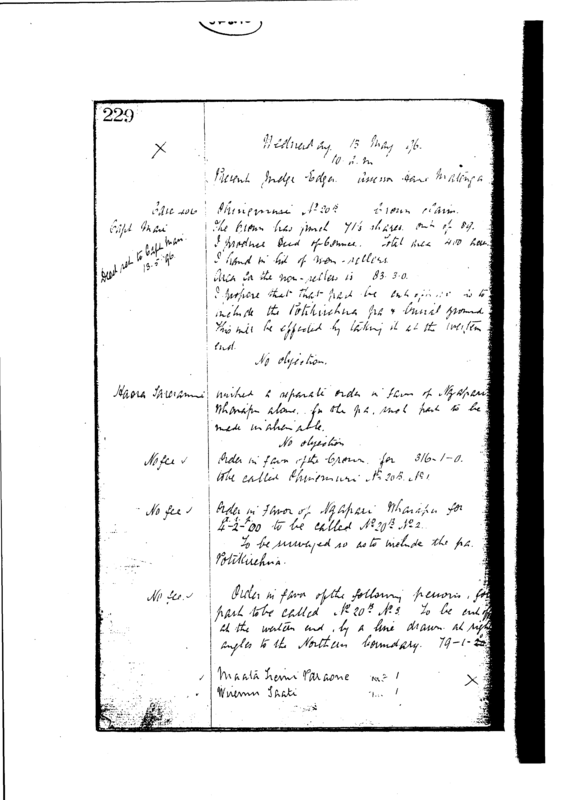 229
Wednesday 13 May 96.
10 a.m
Present Judge Edger Assessor
Case
Ohinemuri No 20B Crown claim.
Capt Mair
The Crown has purch 71½ shares out of 89.
Deed ret to Capt Mair.
13.5.96.
I produce Deed of Total area 400 acres
I hand in list of non-sellers
Area for the non-sellers is 83.3.0.
I propose that that part be cut off so as to
include the Potikirehua pa & burial ground
This will be effected by taking it at the western
end.
No objection.
Haora Tareranui
wished a separate order in favor of Ngapari
Wharapu alone, for the pa, such part to be
made inalienable.
No objection
No fee
Order in favor of the Crown for 316-1-0.
to be called Ohinemuri No 20B. No 1
No fee
Order in favor of Ngapari Wharapu for
4-2-00 to be called No 20B No 2
To be surveyed so as to include the pa
Potikirehua.
No fee.
Order in favor of the following persons, for
part to be called No 20B No 3. To be cut off
at the western end, by a line drawn at right
angles to the Northern boundary. 79-1-
Maata Paraone 1
Wiremu 1